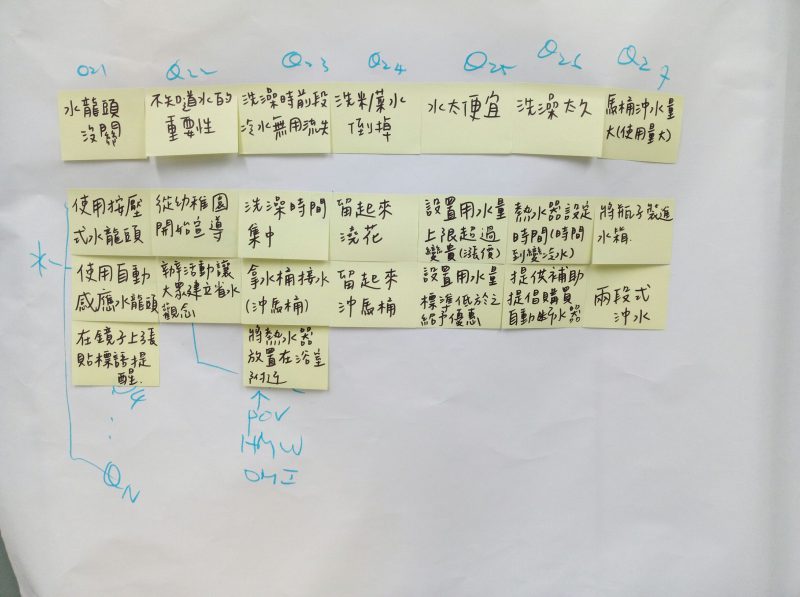 Q21 Q22 Q23 Q24 Q25 Q26 Q27
水龍頭
沒關
不知道水的
重要性
洗澡時前段
冷水無用流失
洗米/菜水
倒掉
水太便宜
洗澡太久
馬桶沖水量
大(使用量大)
使用按壓
式水龍頭
從幼稚園
開始宣導
洗澡時間
集中
留起來
澆花
設置用水量
上限超過
變貴(漲價)
熱水器設定
時間(時間
到變冷水)
將瓶子裝進
水箱.
使用自動
感應水龍頭
辦活動讓
大眾建立省水
觀念
拿水桶接水
(沖馬桶)
留起來
沖馬桶
設置用水量
標準低於之
給予優惠
提供補助
提倡購買
自動
水器
兩段式
沖水
在鏡子上張
貼標語提
醒.
將熱水器
放置在浴室
附近
POV
HMW
QN